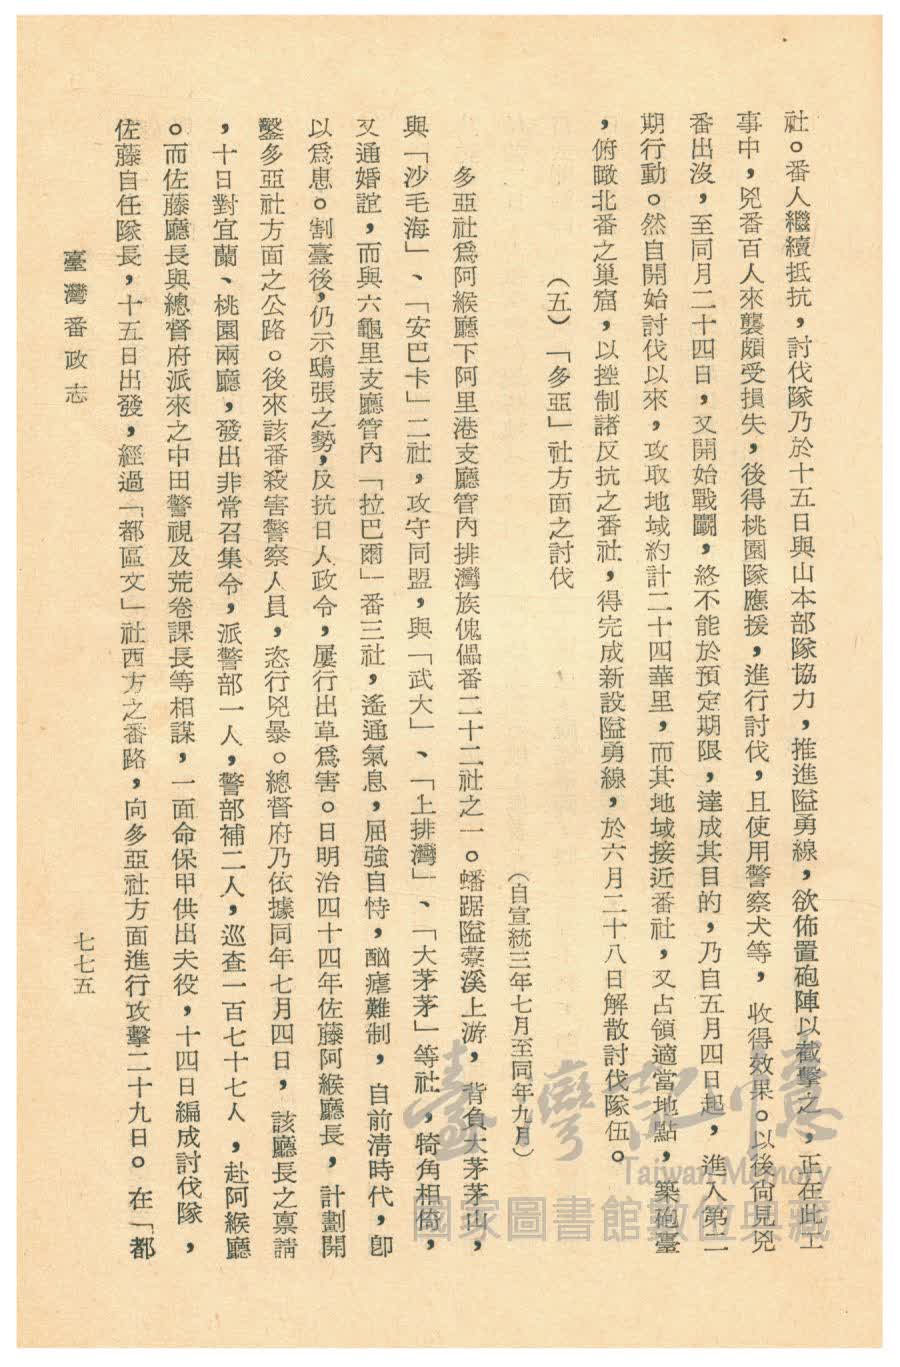 社。番人繼續抵抗，討伐隊乃於十五日與山本部隊協力，推進隘勇線，欲佈置砲陣以截擊之，正在此工
事中，兇番百人來襲頗受損失，後得桃園隊應援，進行討伐，且使用警察犬等，收得效果。以後尙見兇
番出沒，至同月二十四日，又開始戰鬭，終不能於預定期限，達成其目的，乃自五月四日起，進入第二
期行動。然自開始討伐以來，攻取地域約計二十四華里，而其地域接近番社，又占領適當地點，築砲臺
，俯瞰北番之巢窟，以控制諸反抗之番社，得完成新設隘勇線，於六月二十八日解散討伐隊伍。
（五）「多亞」社方面之討伐
（自宣統三年七月至同年九月）
多亞社爲阿緱廳下阿里港支廳管內排灣族傀儡番二十二社之一。蟠踞隘藔溪上游，背負大茅茅山，
與「沙毛海」、「安巴卡」二社，攻守同盟，與「武大」、「上排灣」、「大茅茅」等社，犄角相倚，
又通婚誼，而與六龜里支廳管內「拉巴爾」番三社，遙通氣息，屈強自恃，酗瘧難制，自前淸時代，卽
以爲患。割臺後，仍示鴟張之勢，反抗日人政令，屢行出草爲害。日明治四十四年佐藤阿緱廳長，計劃開
鑿多亞社方面之公路。後來該番殺害警察人員，恣行兇暴。總督府乃依據同年七月四日，該廳長之禀請
，十日對宜蘭、桃園兩廳，發出非常召集令，派警部一人，警部補二人，巡查一百七十七人，赴阿緱廳
。而佐藤廳長與總督府派來之中田警視及荒卷課長等相謀，一面命保甲供出夫役，十四日編成討伐隊，
佐藤自任隊長，十五日出發，經過「都區文」社西方之番路，向多亞社方面進行攻擊二十九日。在「都
臺灣番政志
七七五
臺灣記憶
Taiwan Memory
國家圖書館數位典藏